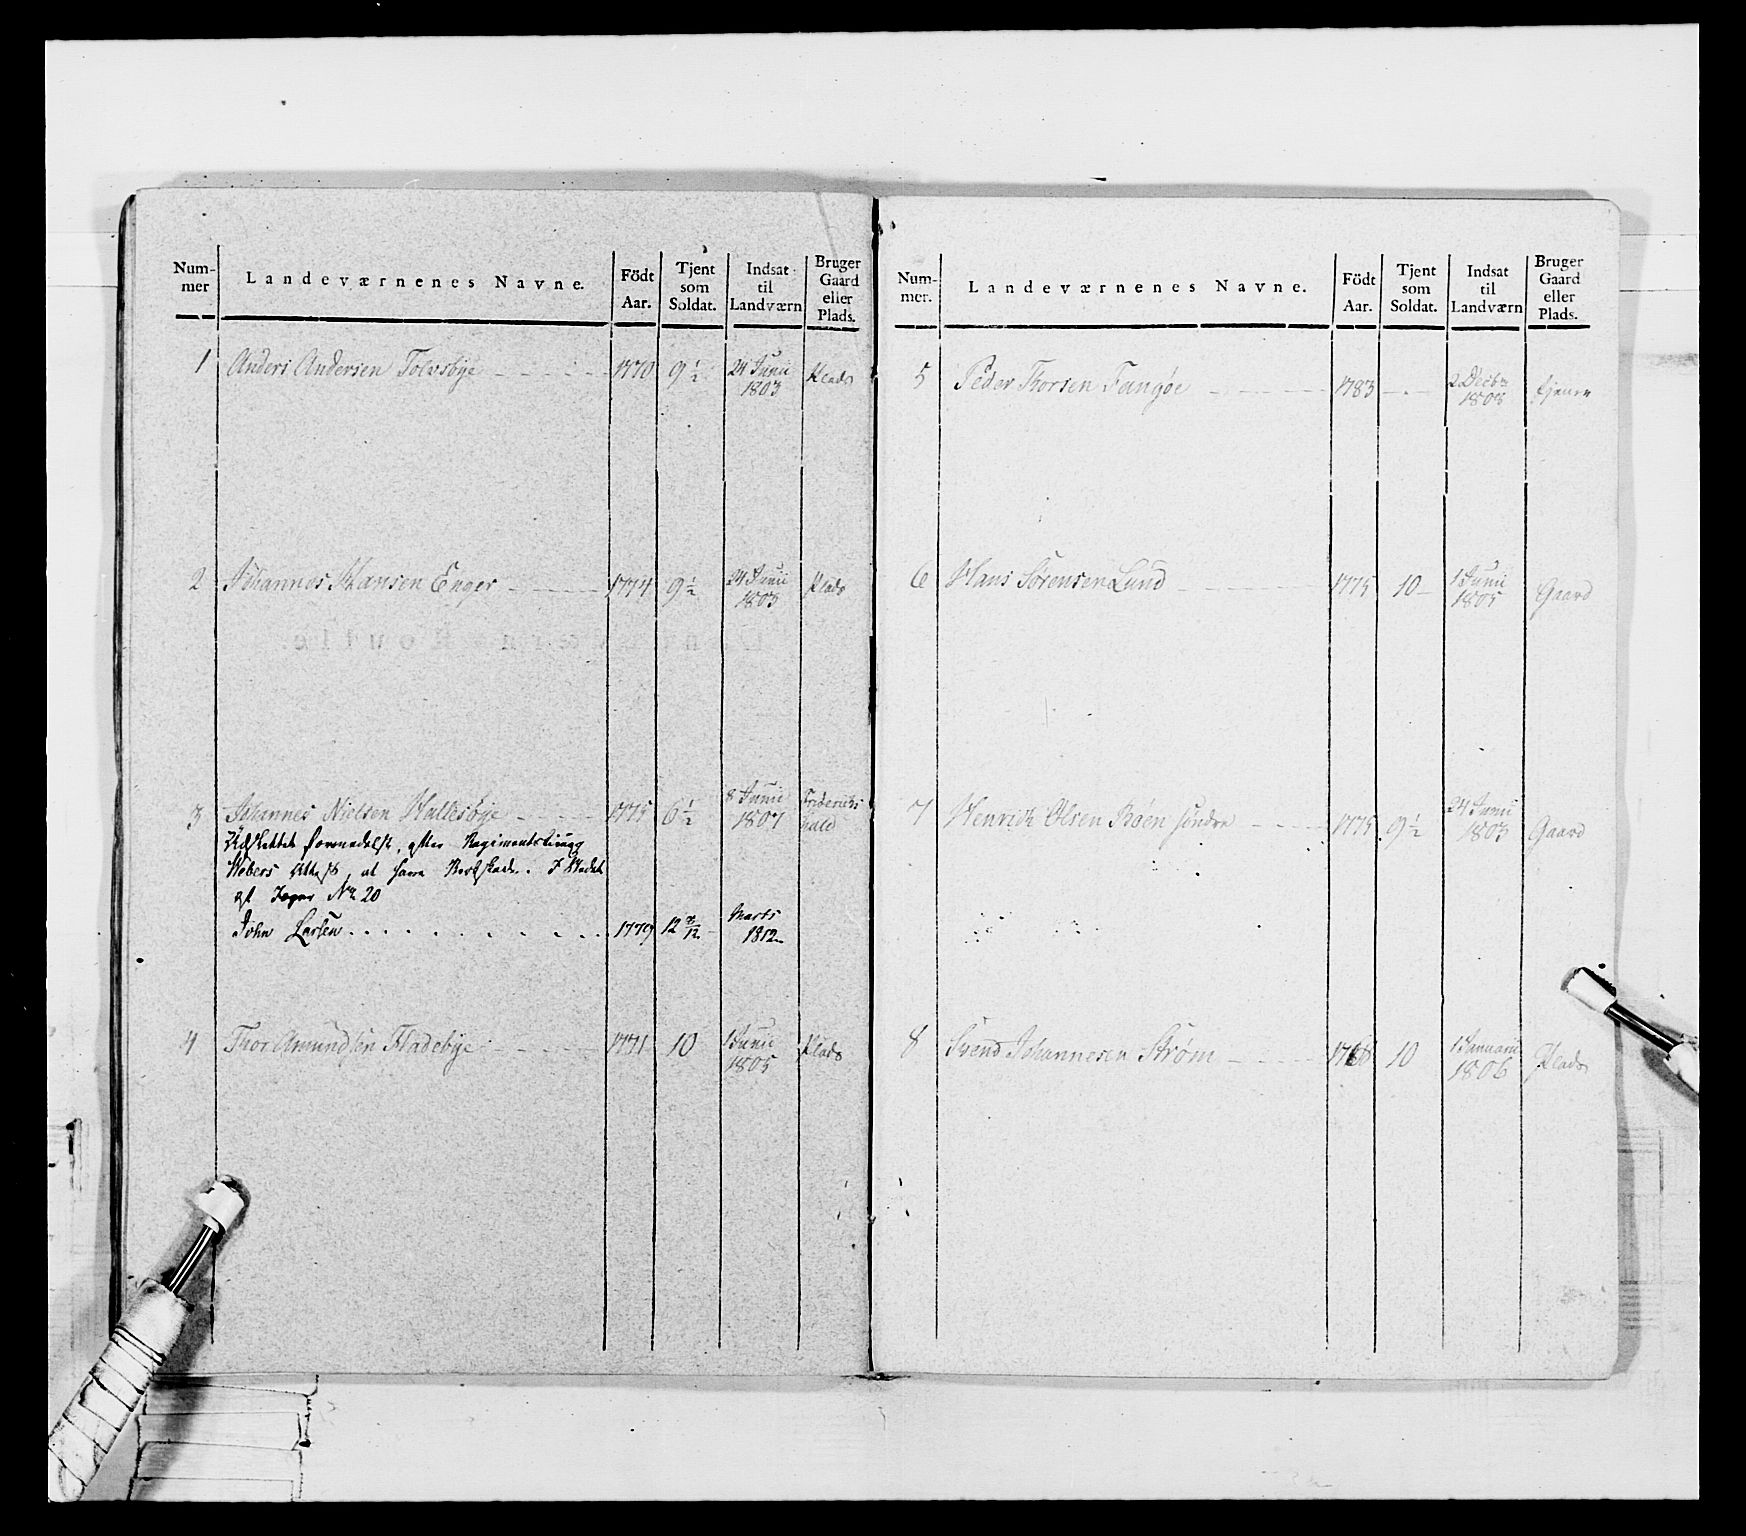 Num-
mer
Landeværnenes Navne.
Födt
Aar.
Tjent
som
Soldat.
Indsat
til
Landværn
Bruger
Gaard
eller
Plads.
1 Anders Andersen Tolvsbye 1770 9 1/2 24 Junii Plads
1803
2 Johannes Hansen Enger 1774 9 1/2 24 Junii Plads
1803
3 Johannes Nielsen Hallesbye 1775 6 1/2 8 Junii Friderichs
1807 hald
Udslettet formedelst, efter Regimentskirurg
Webers Attest, at have Brokskade. I Stedet
No 20
John Larsen 1779 12 Marts
1812
4 Thor Amundsen Fladebye 1771 10 1 Junii Plads
1805
Num-
mer.
Landeværnenes Navne.
Födt
Aar.
Tjent
som
Soldat.
Indsat
til
Landværn
Bruger
Gaard
eller
Plads.
5 Peder Thorsen Fangøe 1783 2 Decbr tjener
1803
6 Hans Sörensen Lund 1775 10 1 Junii Gaard
1805
7 Henrich Olsen Böen söndre 1775 9 1/2 24 Junii Gaard
1803
8 Svend Johannesen Strøm 10 1 Januarii Plads
1806